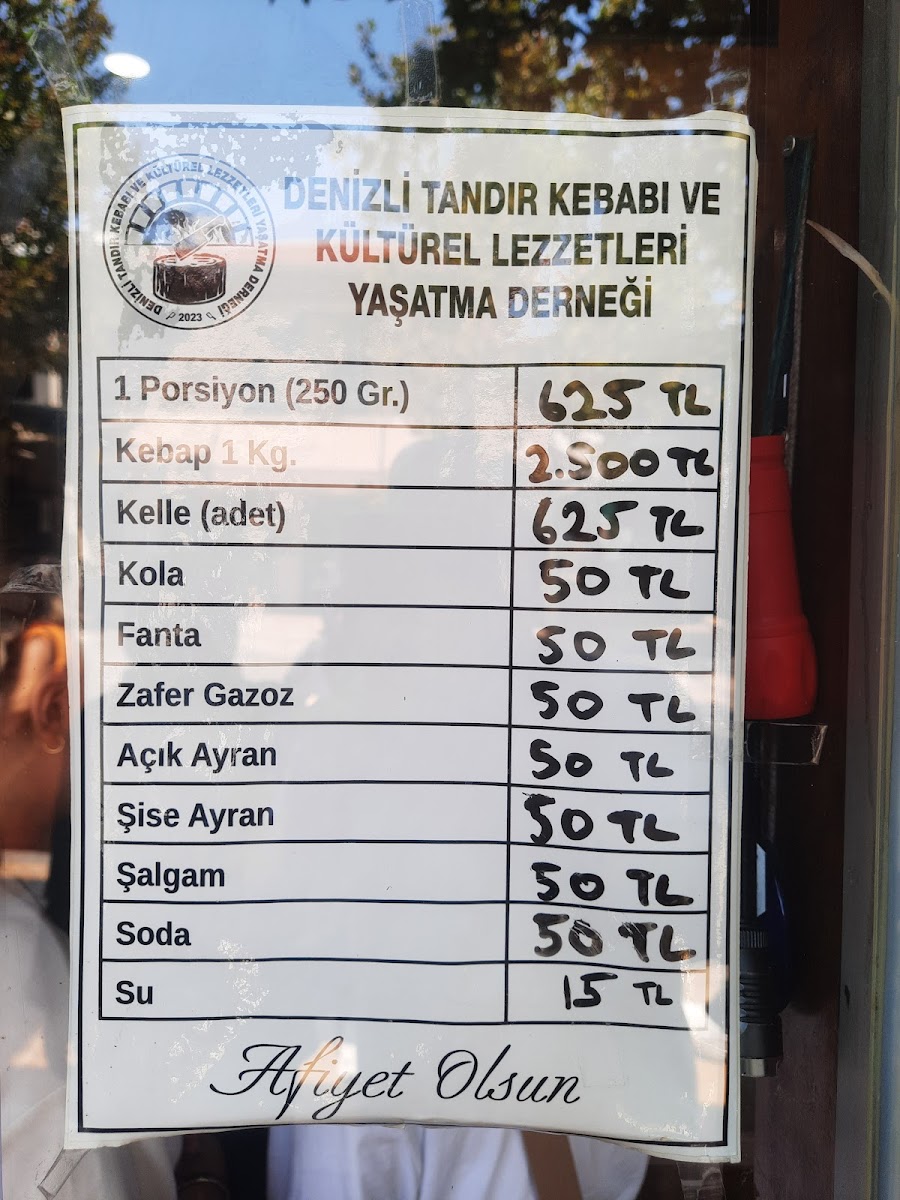 DENİZLİ TANDIR KEBABI VE KÜLTÜREL LEZZETLERİ YAŞATMA DERNEĞİ
2023
DENİZLİ TANDIR KEBABI VE
KÜLTÜREL LEZZETLERİ
YAŞATMA DERNEĞİ
1 Porsiyon (250 Gr.) 625 TL
Kebap 1 Kg. 2.500 TL
Kelle (adet) 625 TL
Kola 50 TL
Fanta 50 TL
Zafer Gazoz 50 TL
Açık Ayran 50 TL
Şise Ayran 50 TL
Şalgam 50 TL
Soda 50 TL
Su 15 TL
Afiyet Olsun